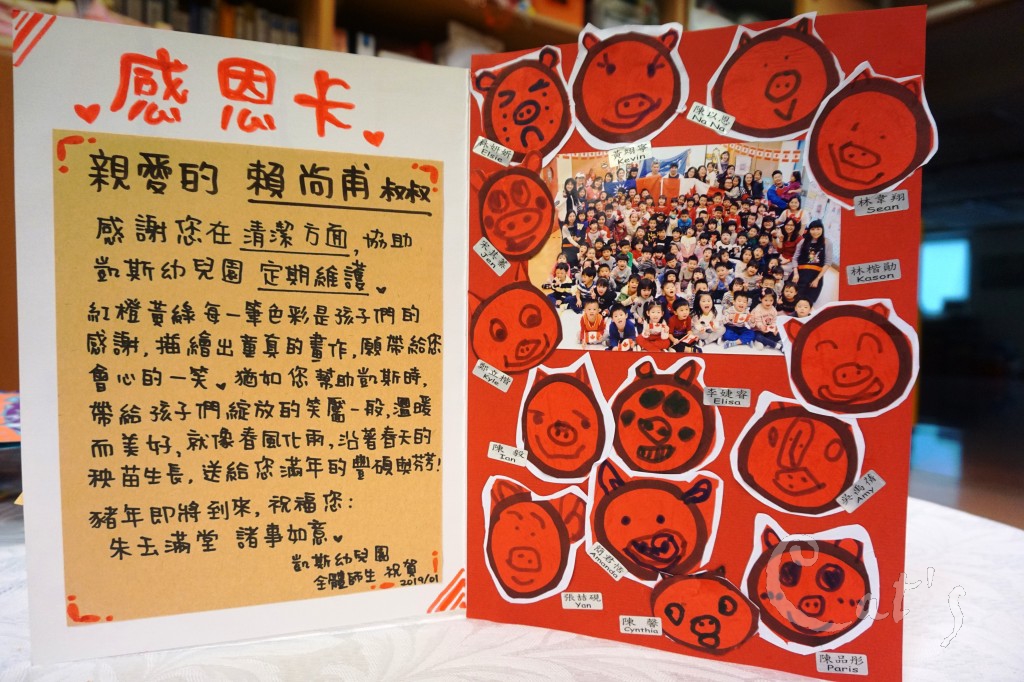 感恩卡
親愛的 賴尚甫 叔叔
感謝您在清潔方面,協助
凱斯幼兒園 定期維護。
紅橙黃綠每一筆色彩是孩子們的
感謝,描繪出童真的畫作,願帶給您
會心的一笑。猶如您幫助凱斯時,
帶給孩子們綻放的笑靨一般,溫暖
而美好,就像春風化雨,沿著春天的
秧苗生長,送給您滿年的豐碩與芬芳!
豬年即將到來,祝福您:
朱玉滿堂 諸事如意。
凱斯幼兒園
全體師生 祝賀
2019/01
Elsie
Kevin
陳以恩
Na Na
林韋翔
Sean
林楷勛
Kason
Jen
Kyle
李婕睿
Elisa
陳毅
Ian
Amy
Amanda
Yan
陳馨
Cynthia
陳品彤
Paris
Cat's